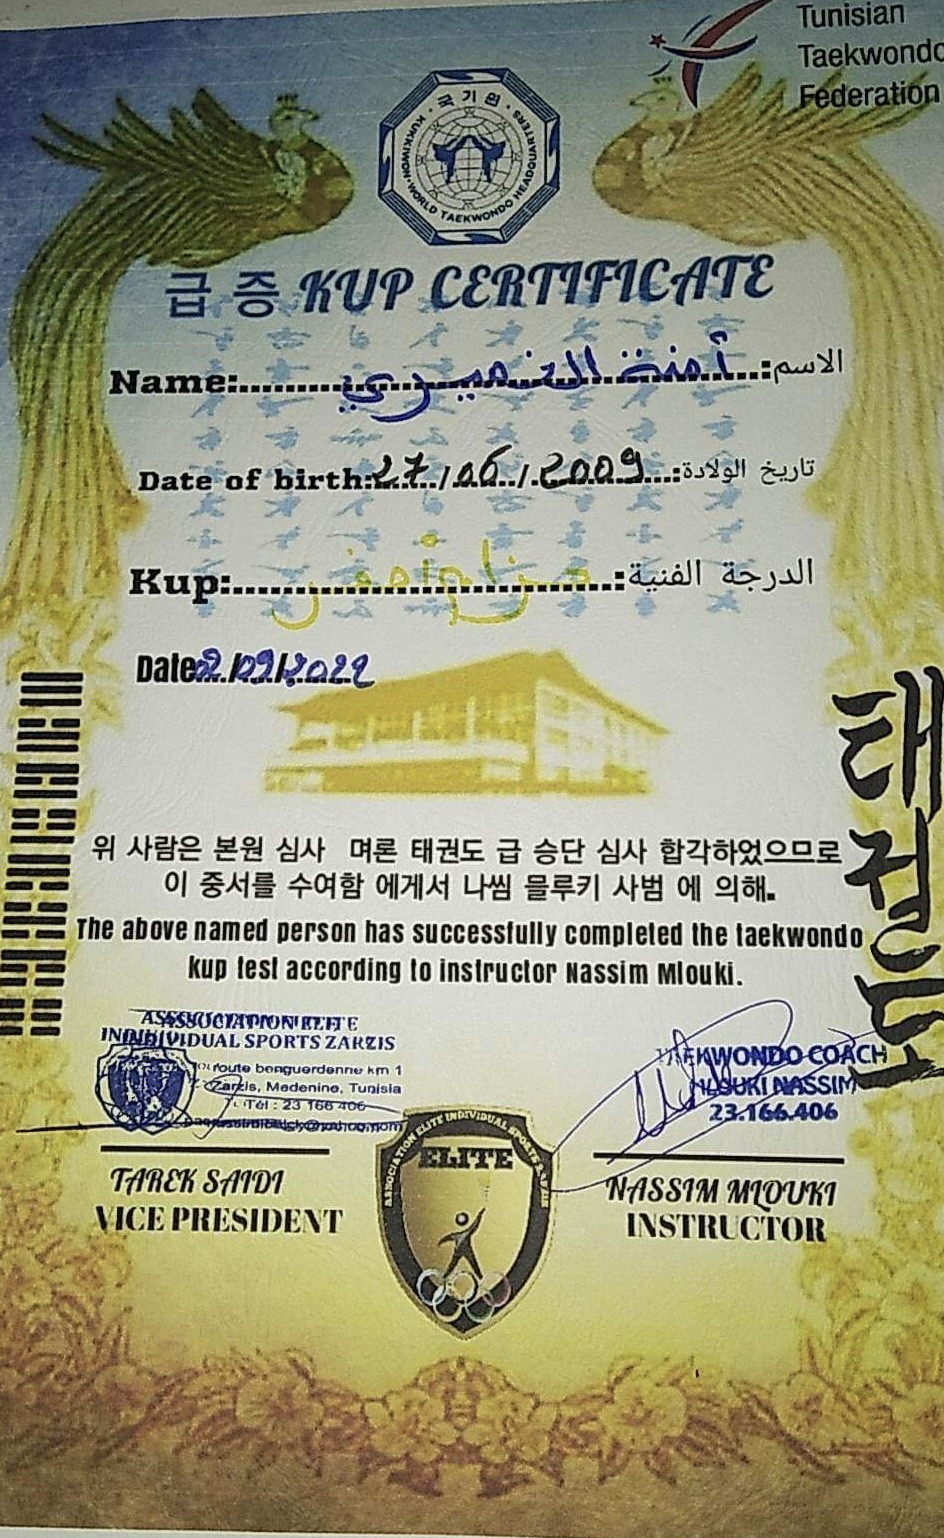 Tunisian
Taekwondo
Federation
국기원
KUKKIWON·WORLD TAEKWONDO HEADQUARTERS
급 증 KUP CERTIFICATE
Name: آمنة النميري الاسم:
Date of birth: 27/06/2009 تاريخ الولادة:
Kup: حزام أصفر الدرجة الفنية:
Date 2/09/2022
태권도
위 사람은 본원 심사 며론 태권도 급 승단 심사 합각하었으므로
이 중서를 수여함 에게서 나씸 믈루키 사범 에 의해.
The above named person has successfully completed the taekwondo
kup test according to instructor Nassim Mlouki.
ASSOCIATION ELITE
INDIVIDUAL SPORTS ZARZIS
route benguerdenne km 1
Zarzis, Medenine, Tunisia
Tél : 23 166 406
TAEKWONDO COACH
MLOUKI NASSIM
23.166.406
TAREK SAIDI
VICE PRESIDENT
NASSIM MLOUKI
INSTRUCTOR
ASSOCIATION ELITE INDIVIDUAL SPORTS ZARZIS
ELITE